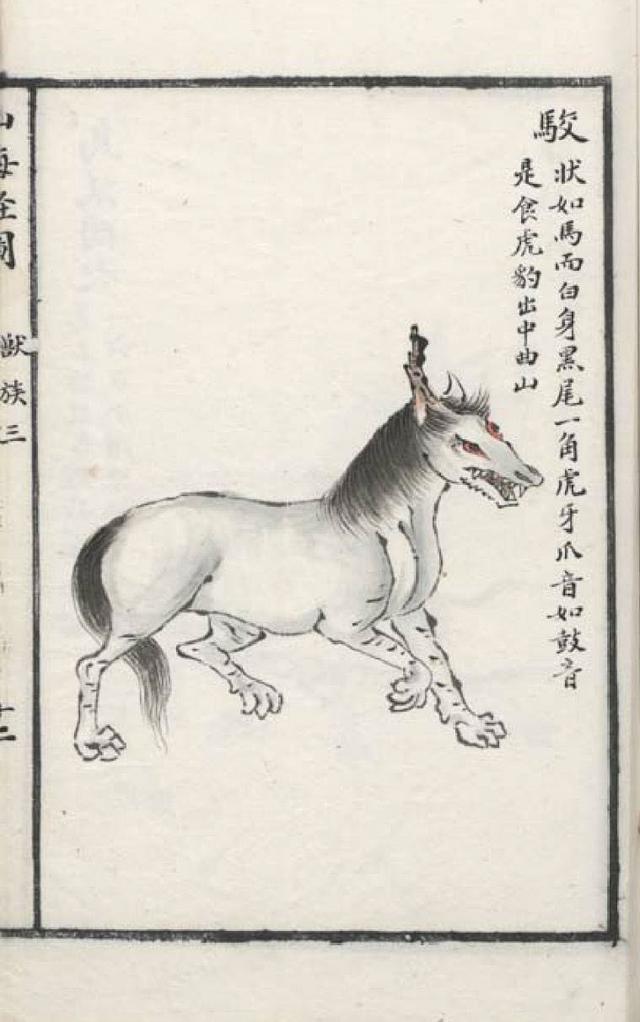 駮
狀如馬而白身黑尾一角虎牙爪音如鼓音
是食虎豹出中曲山
山海經圖
獸族三